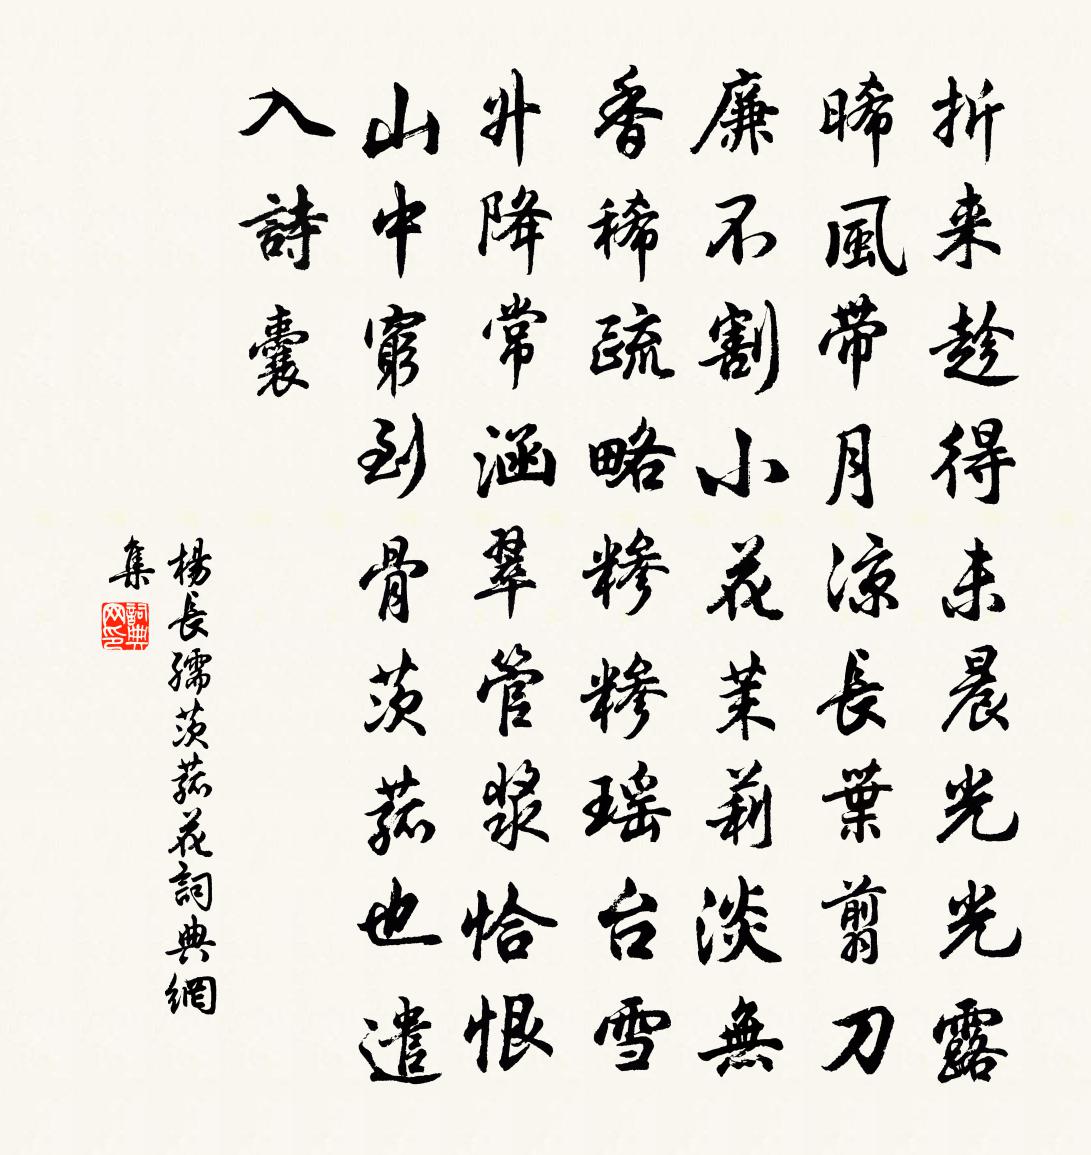 折来趁得未晨光光露
晞風带月涼長葉剪刀
廉不割小花茉莉淡無
香稀疏略糝糝瑶台雪
升降常涵翠管漿恰恨
山中窮到骨茨菰也遣
入詩囊
楊長孺茨菰花詞典網
集
詞典
网印